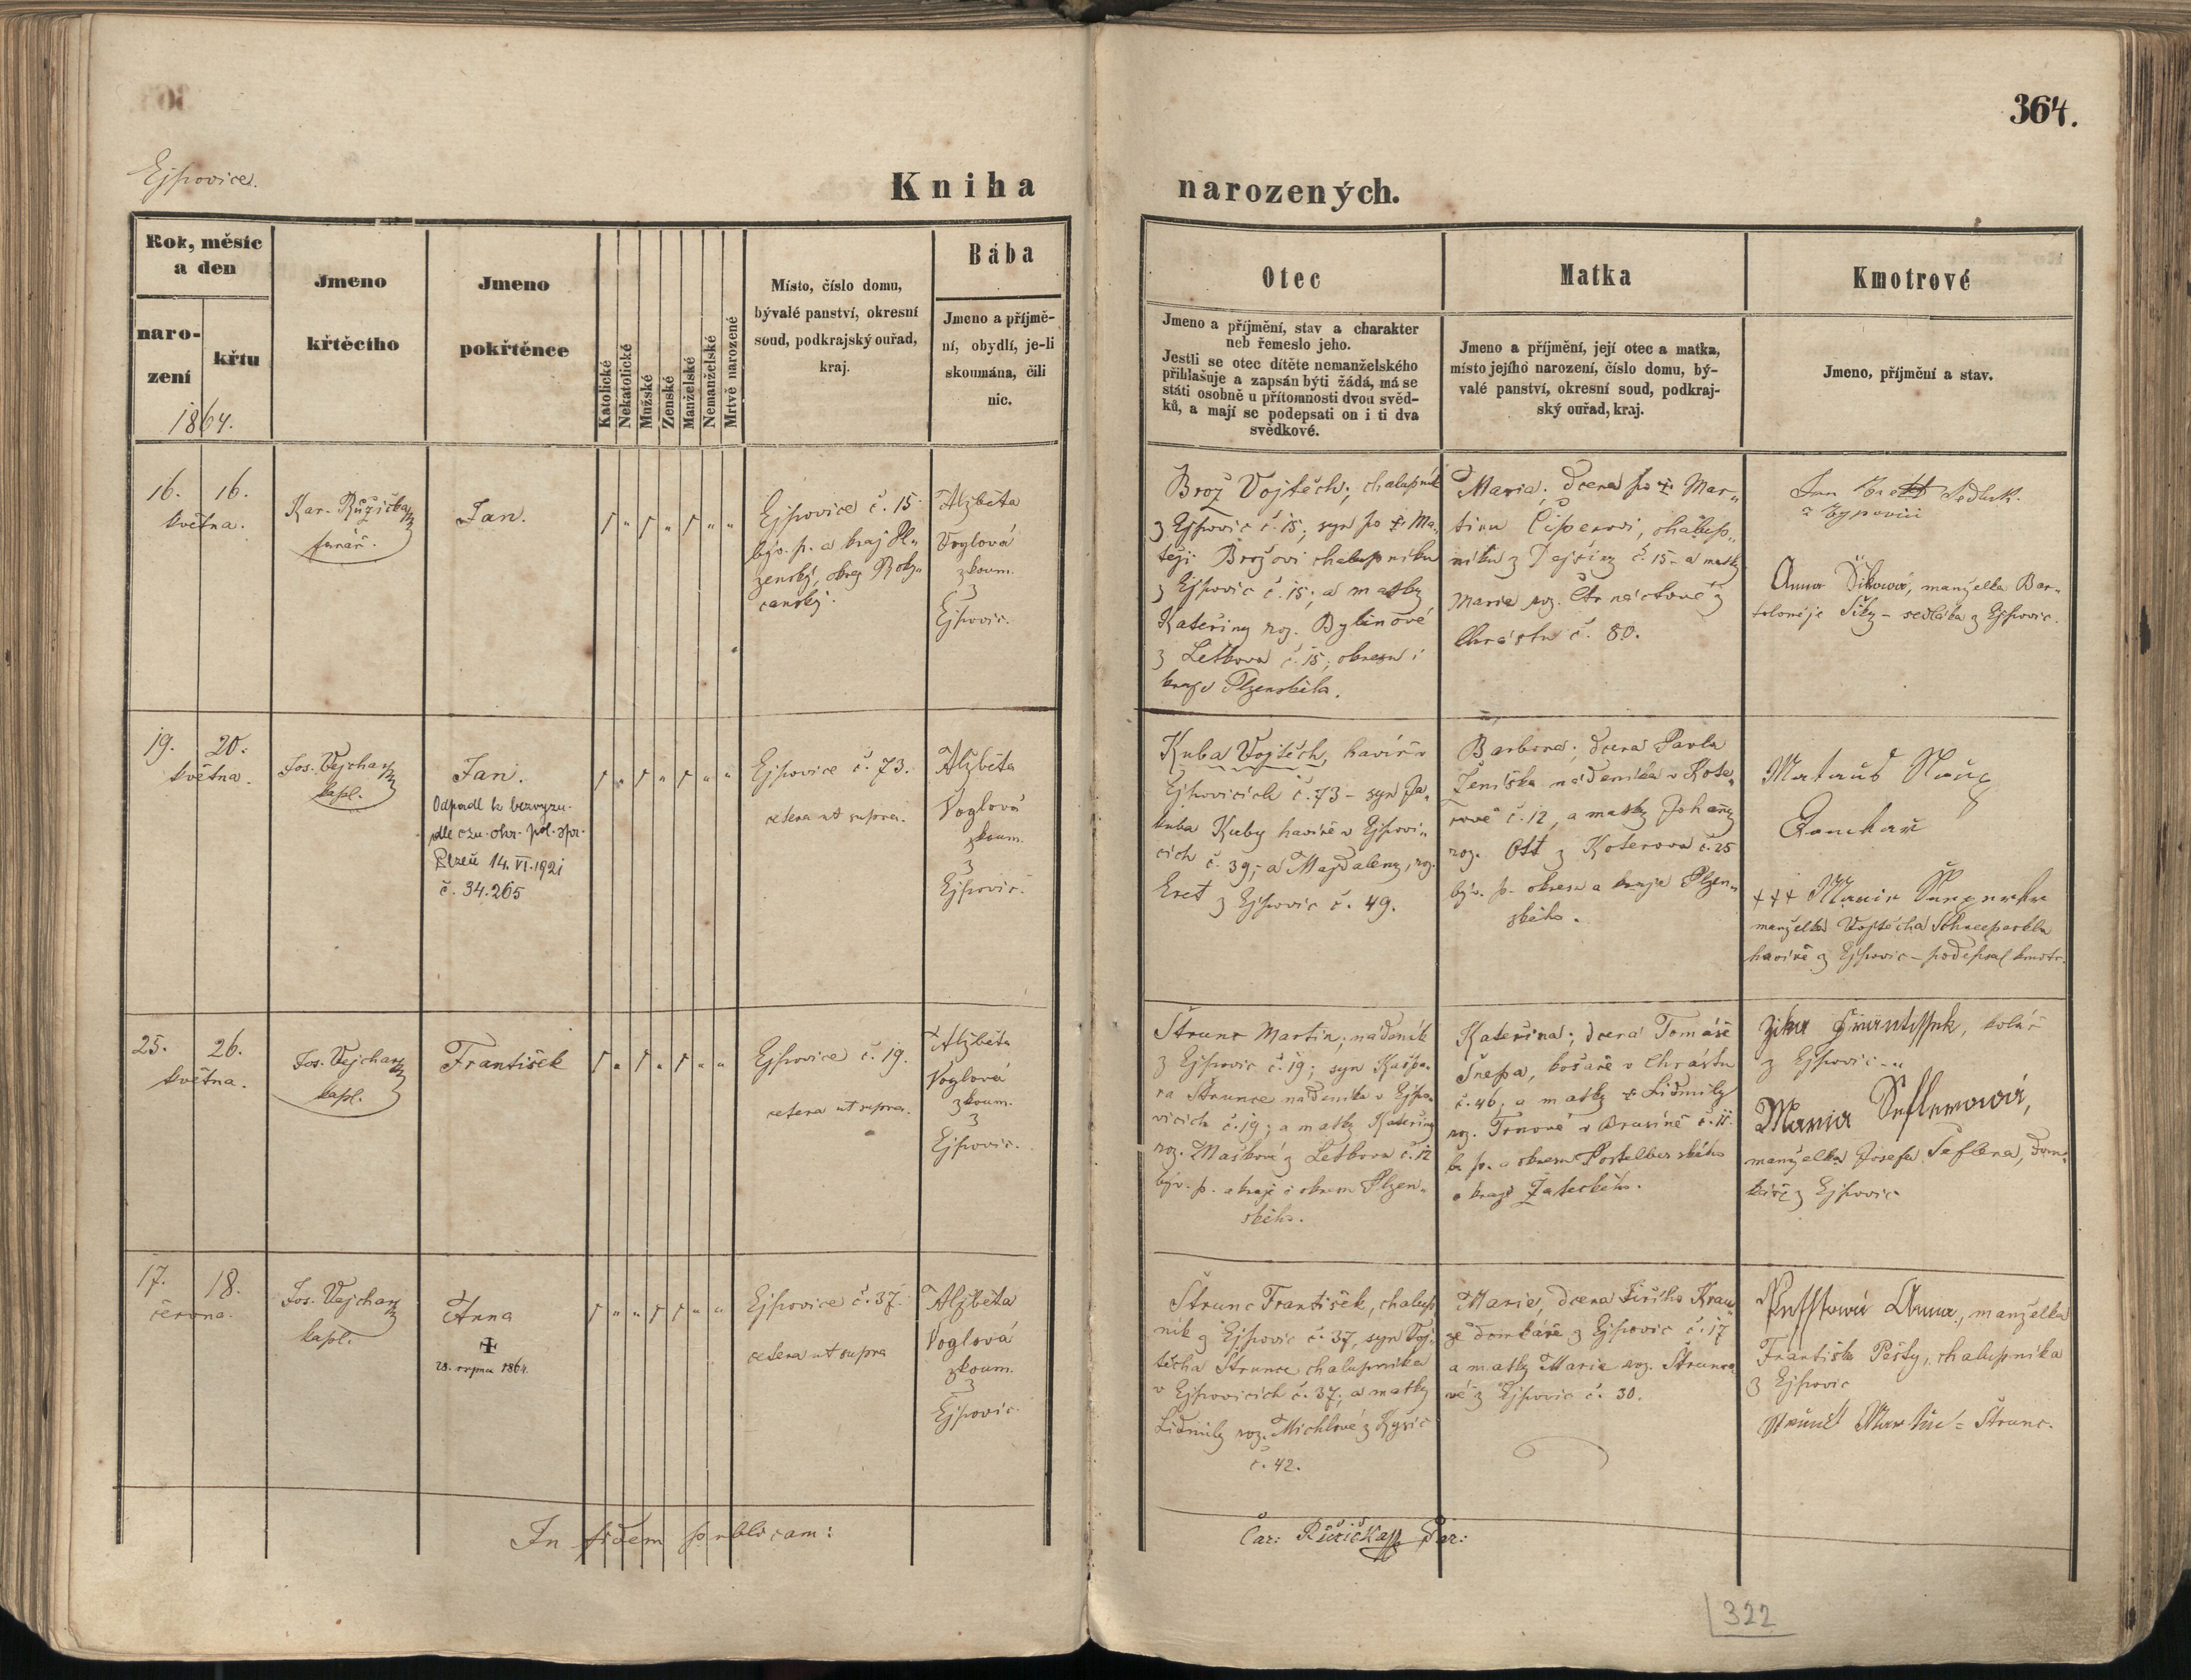 364.
Ejpovice.
Kniha narozených.
Rok, měsíc
a den
naro-
zení
křtu
1864.
Jmeno
křtěcího
Jmeno
pokřtěnce
Katolické
Nekatolické
Mužské
Ženské
Manželské
Nemanželské
Mrtvě narozené
Místo, číslo domu,
bývalé panství, okresní
soud, podkrajský ouřad,
kraj.
Bába
Jmeno a příjmě-
ní, obydlí, je-li
skoumána, čili
nic.
Otec
Jmeno a příjmění, stav a charakter
neb řemeslo jeho.
Jestli se otec dítěte nemanželského
přihlašuje a zapsán býti žádá, má se
státi osobně u přítomnosti dvou svěd-
ků, a mají se podepsati on i ti dva
svědkové.
Matka
Jmeno a příjmění, její otec a matka,
místo jejího narození, číslo domu, bý-
valé panství, okresní soud, podkraj-
ský ouřad, kraj.
Kmotrové
Jmeno, příjmění a stav.
16. 16.
května.
Kar. Růžička
farář.
Jan.
Ejpovice č. 15.
býv. p. a kraj Pl„
zenský, okres Roky„
canský.
Alžběta
Voglová
zkoum.
z
Ejpovic.
Brož Vojtěch, chalupník
z Ejpovic č. 15; syn po + Ma„
těji Brožovi chalupníku
z Ejpovic č. 15; a matky
Kateřiny roz. Bylinové
z Letkova č. 15; okresu i
kraje Plzenského.
Maria; dcera po + Mar„
tinu Čiperovi, chalup„
níku z Dejšiny č. 15 a matky
Marie roz. z
Chrástu č. 80.
Jan Sedlak.
z Eypovic
Anna Šiková, manželka Bar„
toloměje Šiky – sedláka z Ejpovic.
19. 20.
května.
Jos. Vejchar
kapl.
Jan.
Odpadl k bezvyzn.
dle ozn. okr. pol. spr.
Plzeň 14. VI. 1921
č. 34.265
Ejpovice č. 73.
cetera ut supra.
Alžběta
Voglová
zkoum.
z
Ejpovic.
Kuba Vojtěch, havíř v
Ejpovicích č. 73 – syn Ja„
kuba Kuby havíře v Ejpovi„
cích č. 39; a Magdaleny, roz.
Eret z Ejpovic č. 49.
Barbora; dcera Pavla
Ženíška nádeníka v Kote„
rově č. 12, a matky Johany
roz. Ott z Koterova č. 25
býv. p. okresu a kraje Plzen„
ského.
+++ Marie
manželka Vojtěcha Schneeperkla
havíře z Ejpovic – podepsal kmotr.
25. 26.
května.
Jos. Vejchar
kapl.
František
Ejpovice č. 19.
cetera ut supra.
Alžběta
Voglová
zkoum.
z
Ejpovic.
Štrunc Martin; nádeník
z Ejpovic č. 19; syn Kašpa„
ra Štrunce nádeníka v Ejpo„
vicích č. 19; a matky Kateřiny
roz. Maškové z Letkova č. 12
býv. p. a kraje i okresu Plzen„
ského.
Kateřina; dcera Tomáše
Šnepa, košaře v Chrástu
č. 46, a matky + Lidmily
roz. Trnové v č. 11.
b. p. a okresu Postelberského
a kraje Žateckého.
Zika Frantissek, kolář
z Ejpovic
Maria Seflernová,
manželka Josefa Šeflera, dom„
káře z Ejpovic
17. 18.
června.
Jos. Vejchar
kapl.
Anna
✠
28. srpna 1864.
Ejpovice č. 37.
cetera ut supra
Alžběta
Voglová
zkoum.
z
Ejpovic.
Štrunc František, chalup„
ník z Ejpovic č. 37, syn Voj„
těcha Štrunce chalupníka
v Ejpovicích č. 37; a matky
Lidmily roz. Michlové z Kyšic
č. 42.
Marie, dcera Jiřího Krau„
ze domkáře z Ejpovic č. 17
a matky Marie roz. Štrunco„
vé z Ejpovic č. 30.
Anna, manželka
Františka Pešty, chalupníka
z Ejpovic
Martin = Štrunc.
In fidem publicam:
Car: Růžička Par:
322